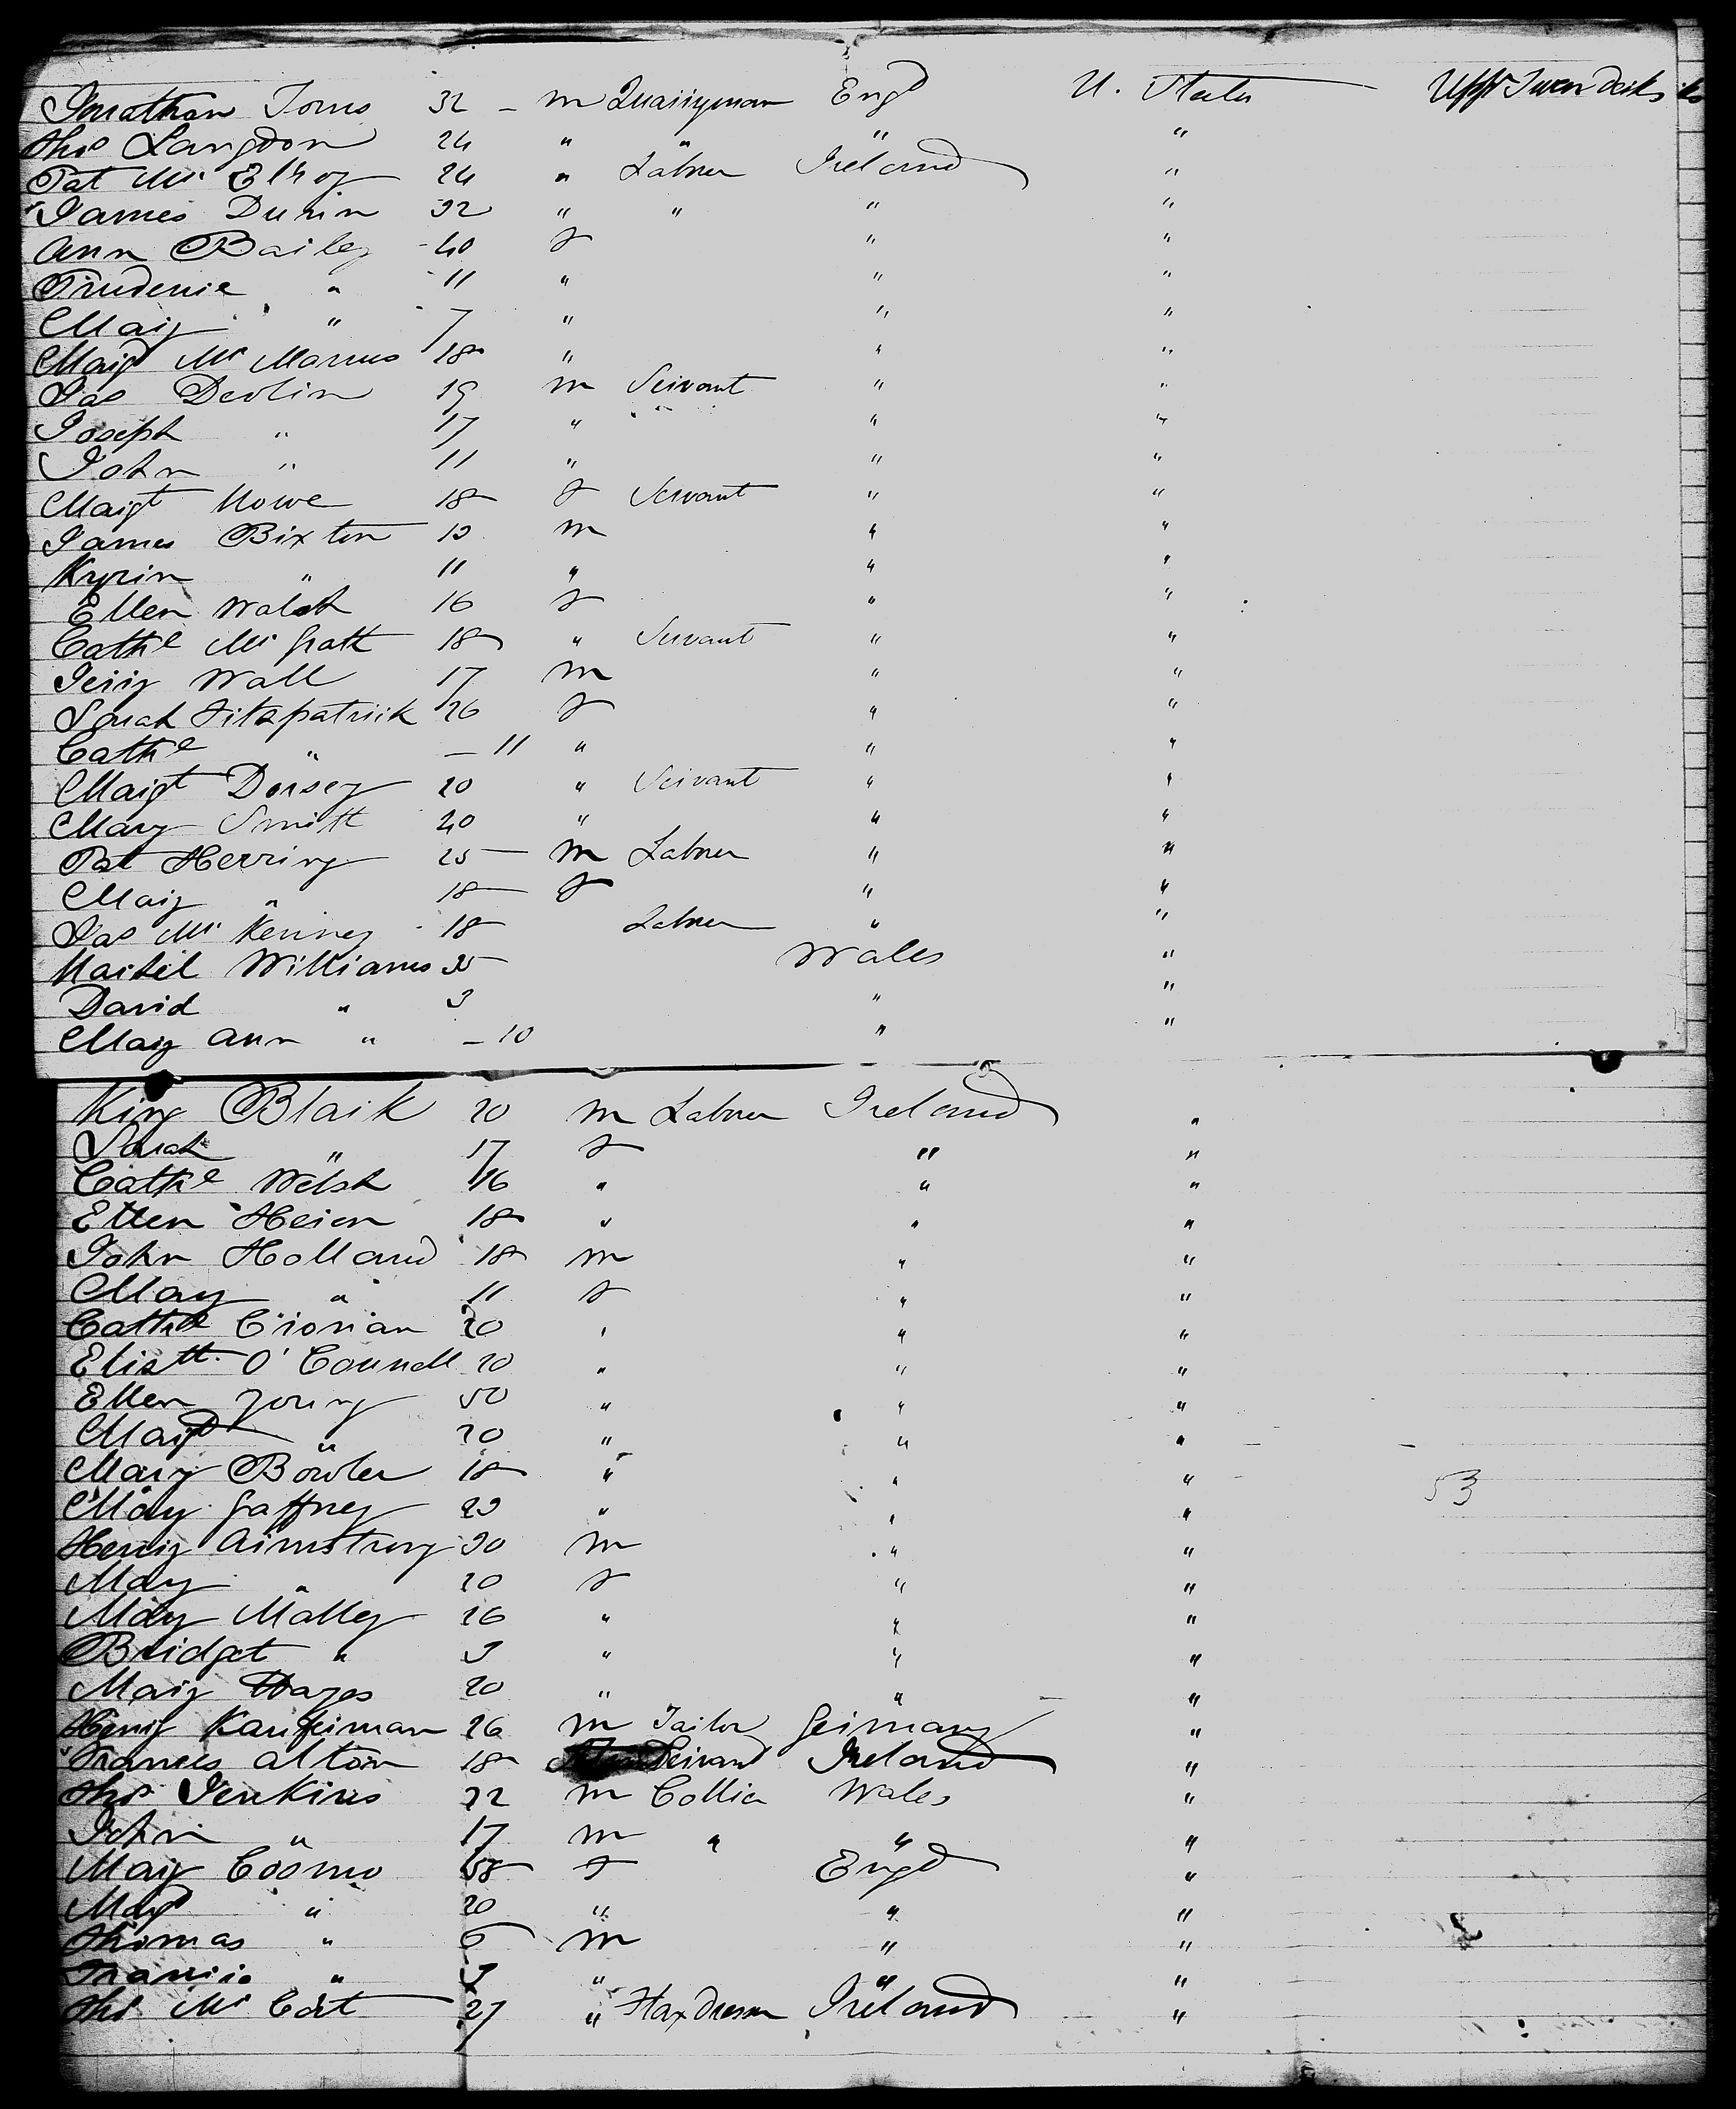 Jonathan Torus 32 - m Quarryman Engd U. States Uppr Tween decks
Thos Langdon 24 " " " "
Pat Mc Elroy 24 " Labrer Ireland "
James Dunin 32 " " " "
Ann Bailey 40 f " "
Prudence " 11 " " "
Mary " 7 " " "
Margt Mc Manus 18 " " "
Jas Devlin 19 m Servant " "
Joseph " 17 " " "
John " 11 " " "
Margt Howe 18 f Servant " "
James Bixton 13 m " "
Kyrin " 11 " " "
Ellen Walsh 16 f " "
Cathe Mc Grath 18 " Servant " "
Jerry Wall 17 m " "
Sarah Fitzpatrick 26 f " "
Cathe " - 11 " " "
Margt Dorsey 20 " Servant " "
Mary Smith 20 " " "
Pat Herring 25 m Labrer " "
Mary " 18 f " "
Jas Mc Kenney 18 Labrer " "
Williams 35 Wales "
David " 3 " "
Mary Ann " - 10 " "
King Blaik 20 m Labrer Ireland "
Sarah " 17 f " "
Cathe Welsh 16 " " "
Ellen Heron 18 " " "
John Holland 18 m " "
Mary " 11 f " "
Cathe Cronan 20 " " "
Elizth O'Connell 20 " " "
Ellen Young 50 " " "
Margt " 20 " " "
Mary Bowler 18 " " " 53
Mary Gaffney 23 " " "
Henry Armstrong 30 m " "
Mary " 20 f " "
Mary Malley 26 " " "
Bridget " 3 " " "
Mary Hayes 20 " " "
Henry Kaufeiman 26 m Tailor Germany "
Frances Alton 18 Servant Ireland "
Thos Jenkins 22 m Collier Wales "
John " 17 m " " "
Mary Cosmo 58 f Engd "
Margt " 20 " " "
Thomas " 6 m " "
Francis " 3 " " "
Thos Mc 27 " Flax dresser Ireland "